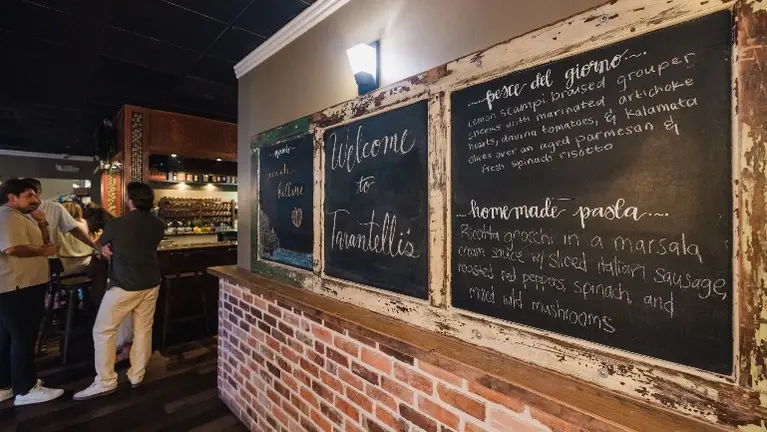 Welcome
to
Tarantelli's
pesce del giorno
Lemon scampi braised grouper
cheeks with marinated artichoke
hearts, davina tomatoes, & kalamata
olives over an aged parmesan &
fresh spinach risotto
homemade pasta
Ricotta gnocchi in a marsala
cream sauce w/ sliced italian sausage,
roasted red peppers, spinach, and
mixed wild mushrooms